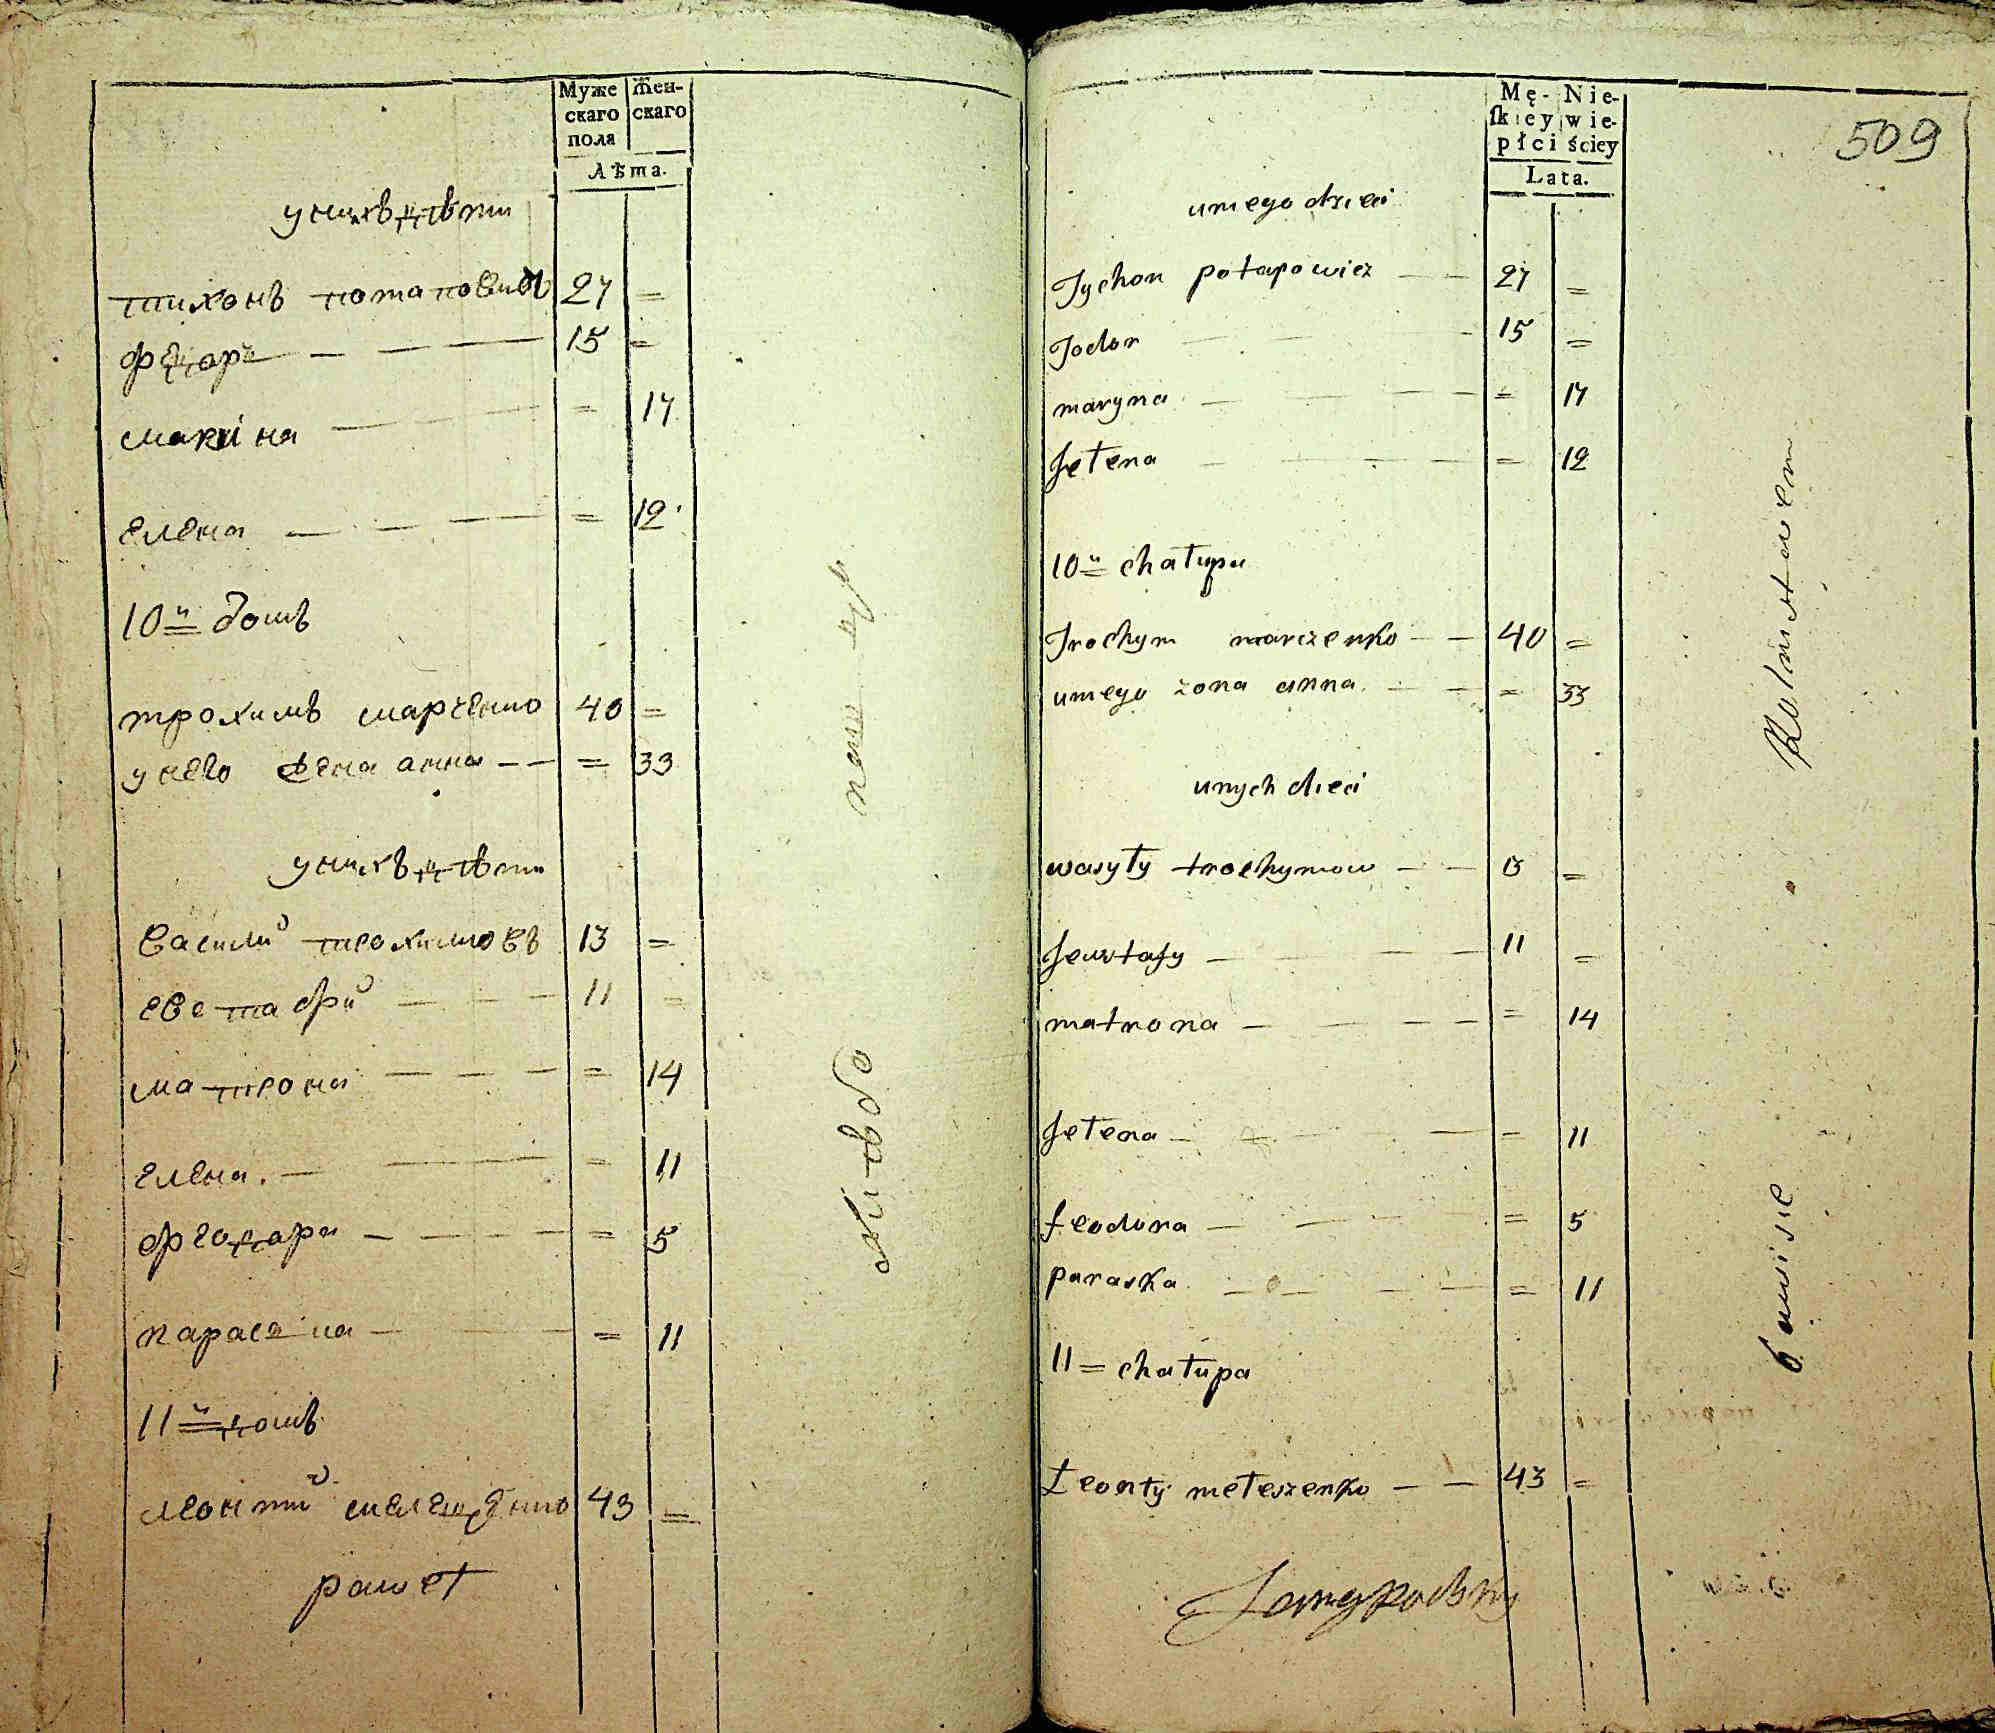 Муже Жен-
скаго скаго
пола
Лѣта.
у нихъ дѣти
тихонъ потаповичъ 27 =
федоръ — — — 15 =
марина — — — = 17
елена — — — = 12
10й домъ
трохимъ марченко 40 =
у него жена анна — — = 33
у нихъ дѣти
василий трохимовъ 13 =
евстафий — — — 11 =
матрона — — — = 14
елена. — — = 11
феодора — — — = 5
параска — — = 11
11й домъ
леонтий мелещенко 43 =
paweł
509
Mę- Nie-
ſkiey wie-
płci ściey
Lata.
umego dzieci
Tychon potapowicz — — 27 =
Fodor — — — 15 =
maryna — — — = 17
Jełena — — — = 12
10й chałupa
Trochym marczenko — — 40 =
umego żona anna — — = 33
unych dieci
wasyły trochymow — — 13 =
Jewstafy — — — 11 =
matrona — — — = 14
Jełena — — — = 11
feodora — — — = 5
paraska — — — = 11
11 = chałupa
Łeonty mełeszenko — — 43 =